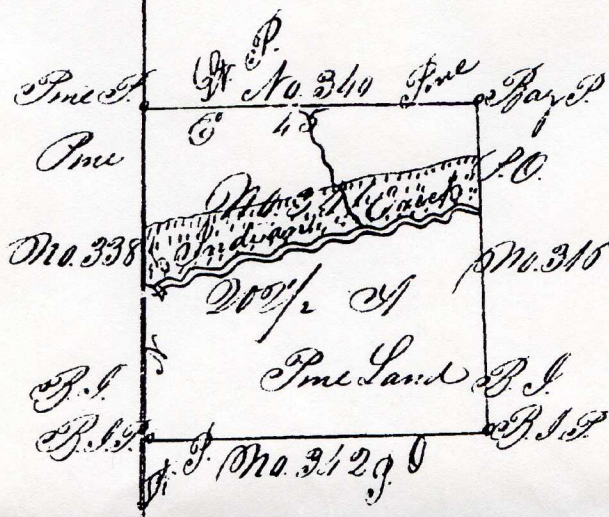 P.
No. 340 Pine
Pine P. Bay P.
E 45
Pine
S.O.
No. 341
Indian Creek
No. 338 No. 316
202 1/2 A
Pine Land
B.J. B.J.
B.J.P. B.J.P.
P. No. 342